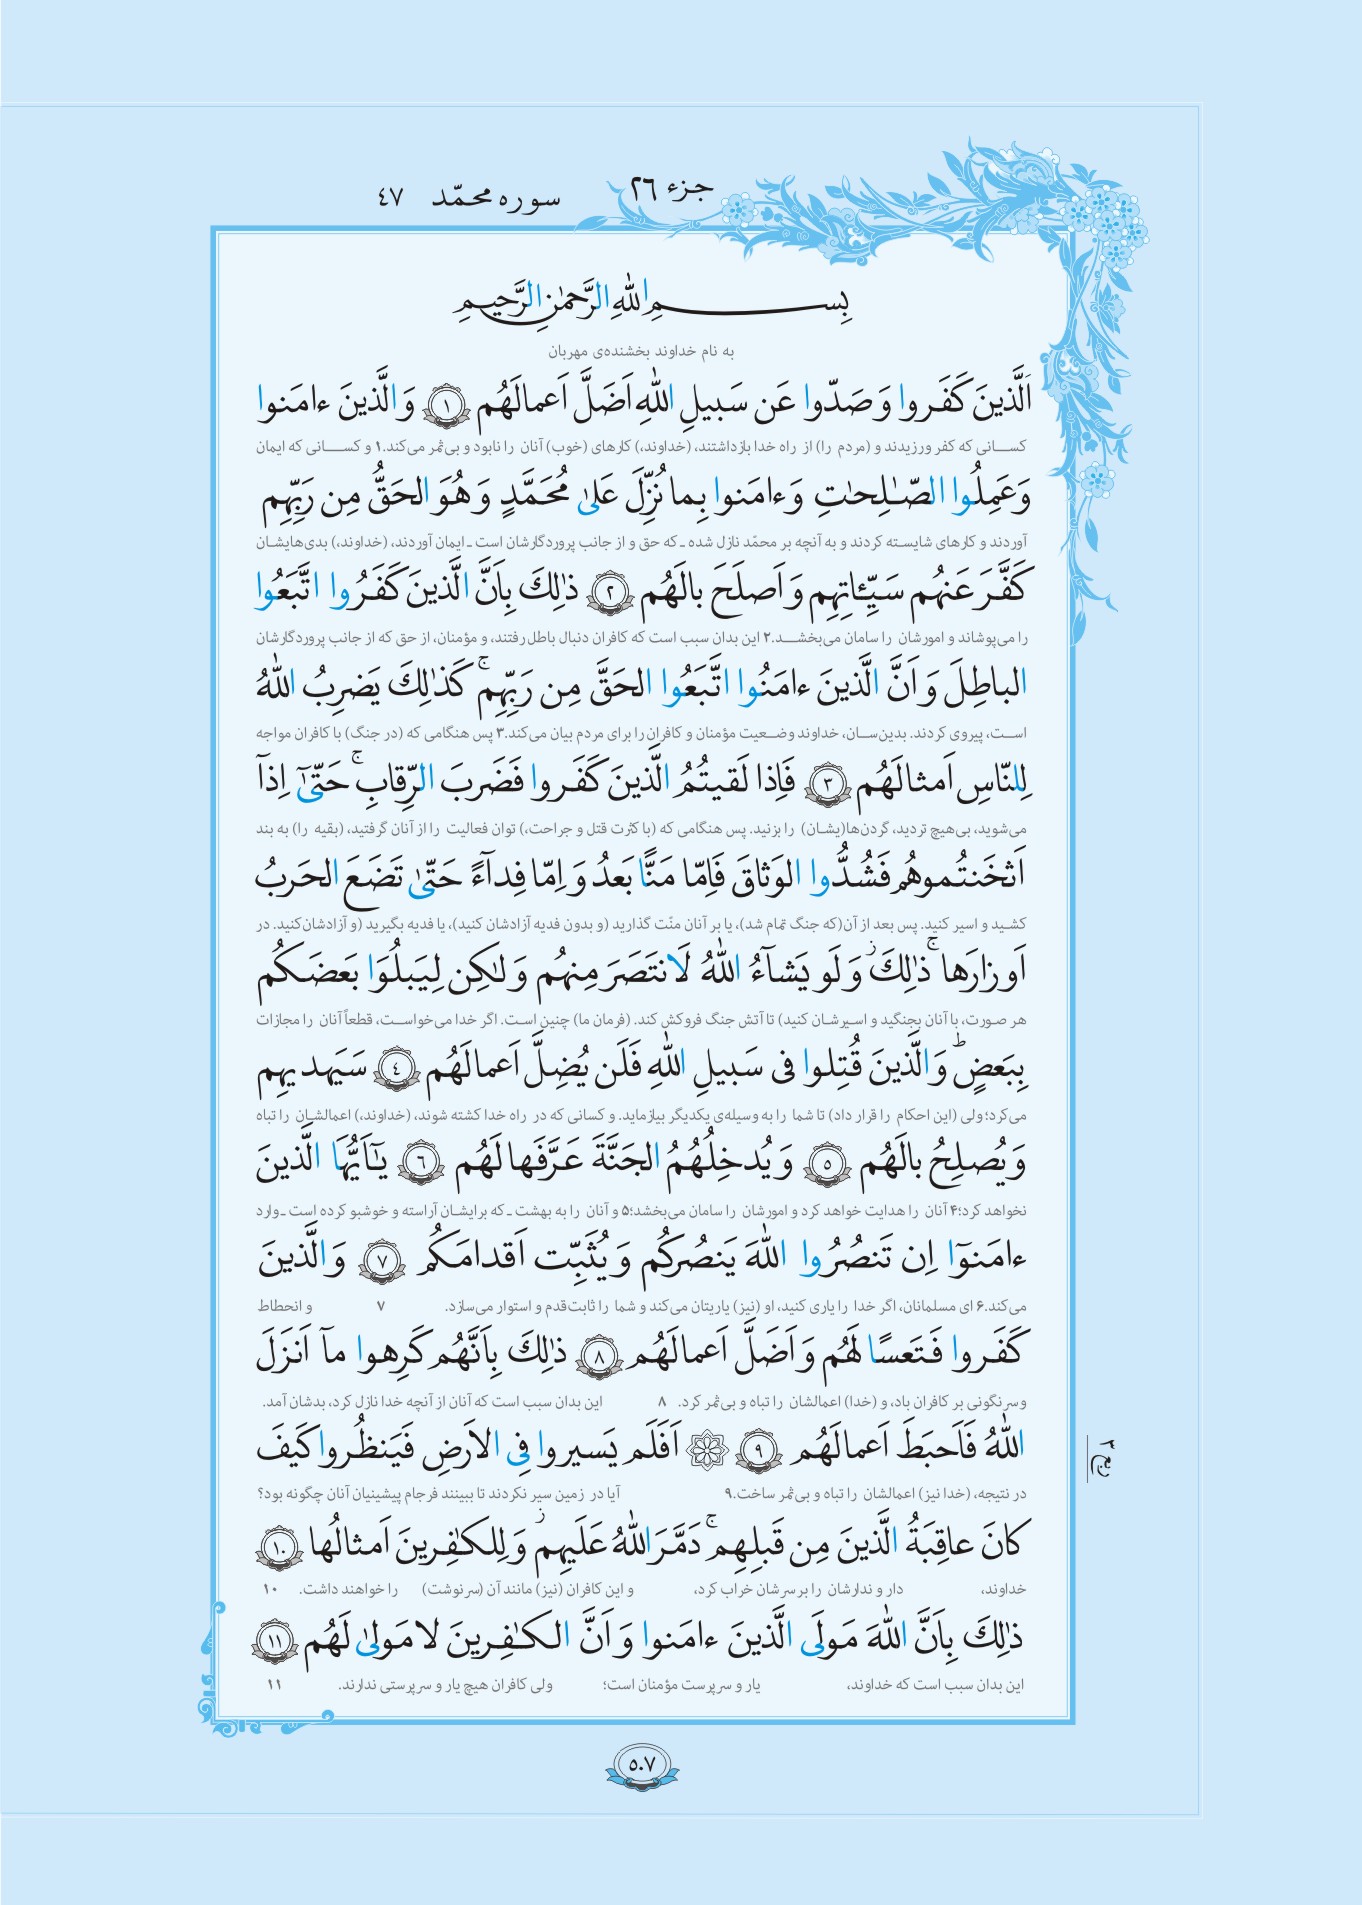 جزء ٢٦
سوره محمّد ٤٧
بِسـمِ اللّٰهِ الرَّحمٰنِ الرَّحیمِ
به نام خداوند بخشنده‌ی مهربان
اَلَّذینَ کَفَروا وَ صَدّوا عَن سَبیلِ اللّٰهِ اَضَلَّ اَعمالَهُم ﴿١﴾ وَ الَّذینَ ءامَنوا
کسانی که کفر ورزیدند و (مردم را) از راه خدا بازداشتند، (خداوند،) کارهای (خوب) آنان را نابود و بی‌ثمر می‌کند.۱ و کسانی که ایمان
وَ عَمِلُوا الصّٰلِحٰتِ وَ ءامَنوا بِما نُزِّلَ عَلىٰ مُحَمَّدٍ وَ هُوَ الحَقُّ مِن رَبِّهِم
آوردند و کارهای شایسته کردند و به آنچه بر محمّد نازل شده ـ که حق و از جانب پروردگارشان است ـ ایمان آوردند، (خداوند،) بدی‌هایشان
کَفَّرَ عَنهُم سَیِّـٔاتِهِم وَ اَصلَحَ بالَهُم ﴿٢﴾ ذٰلِكَ بِاَنَّ الَّذینَ کَفَرُوا اتَّبَعُوا
را می‌پوشاند و امورشان را سامان می‌بخشد.۲ این بدان سبب است که کافران دنبال باطل رفتند، و مؤمنان، از حق که از جانب پروردگارشان
الباطِلَ وَ اَنَّ الَّذینَ ءامَنُوا اتَّبَعُوا الحَقَّ مِن رَبِّهِم ۚ کَذٰلِكَ یَضرِبُ اللّٰهُ
است، پیروی کردند. بدین‌سان، خداوند وضعیت مؤمنان و کافران را برای مردم بیان می‌کند.۳ پس هنگامی که (در جنگ) با کافران مواجه
لِلنّاسِ اَمثالَهُم ﴿٣﴾ فَاِذا لَقیتُمُ الَّذینَ کَفَروا فَضَربَ الرِّقابِ ۚ حَتّىٰٓ اِذآ
می‌شوید، بی‌هیچ تردید، گردن‌ها(یشان) را بزنید. پس هنگامی که (با کثرت قتل و جراحت،) توان فعالیت را از آنان گرفتید، (بقیه را) به بند
اَثخَنتُموهُم فَشُدُّوا الوَثاقَ فَاِمّا مَنًّا بَعدُ وَ اِمّا فِدآءً حَتّىٰ تَضَعَ الحَربُ
کشید و اسیر کنید. پس بعد از آن(که جنگ تمام شد)، یا بر آنان منّت گذارید (و بدون فدیه آزادشان کنید)، یا فدیه بگیرید (و آزادشان‌کنید. در
اَوزارَها ۚ ذٰلِكَ ز وَ لَو یَشآءُ اللّٰهُ لَانتَصَرَ مِنهُم وَ لٰکِن لِیَبلُوَا بَعضَکُم
هر صورت، با آنان بجنگید و اسیرشان کنید) تا آتش جنگ فروکش کند. (فرمان ما) چنین است. اگر خدا می‌خواست، قطعاً آنان را مجازات
بِبَعضٍ ؕ وَ الَّذینَ قُتِلوا فی سَبیلِ اللّٰهِ فَلَن یُضِلَّ اَعمالَهُم ﴿٤﴾ سَیَهدیهِم
می‌کرد؛ ولی (این احکام را قرار داد) تا شما را به وسیله‌ی یکدیگر بیازماید. و کسانی که در راه خدا کشته شوند، (خداوند،) اعمالشان را تباه
وَ یُصلِحُ بالَهُم ﴿٥﴾ وَ یُدخِلُهُمُ الجَنَّةَ عَرَّفَها لَهُم ﴿٦﴾ یٰٓاَیُّهَا الَّذینَ
نخواهد کرد؛۴ آنان را هدایت خواهد کرد و امورشان را سامان می‌بخشد؛۵ و آنان را به بهشت ـ که برایشان آراسته و خوشبو کرده است ـ وارد
ءامَنوٓا اِن تَنصُرُوا اللّٰهَ یَنصُرکُم وَ یُثَبِّت اَقدامَکُم ﴿٧﴾ وَ الَّذینَ
می‌کند.۶ ای مسلمانان، اگر خدا را یاری کنید، او (نیز) یاریتان می‌کند و شما را ثابت‌قدم و استوار می‌سازد. ۷ و انحطاط
کَفَروا فَتَعسًا لَهُم وَ اَضَلَّ اَعمالَهُم ﴿٨﴾ ذٰلِكَ بِاَنَّهُم کَرِهوا مآ اَنزَلَ
و سرنگونی بر کافران باد، و (خدا) اعمالشان را تباه و بی‌ثمر کرد. ۸ این بدان سبب است که آنان از آنچه خدا نازل کرد، بدشان آمد.
اللّٰهُ فَاَحبَطَ اَعمالَهُم ﴿٩﴾ ۞ اَفَلَم یَسیروا فِی الاَرضِ فَیَنظُروا کَیفَ
در نتیجه، (خدا نیز) اعمالشان را تباه و بی‌ثمر ساخت.۹ آیا در زمین سیر نکردند تا ببینند فرجام پیشینیان آنان چگونه بود؟
کانَ عاقِبَةُ الَّذینَ مِن قَبلِهِم ۚ دَمَّرَ اللّٰهُ عَلَیهِم ز وَ لِلکٰفِرینَ اَمثالُها ﴿١٠﴾
خداوند، دار و ندارشان را بر سرشان خراب کرد، و این کافران (نیز) مانند آن (سرنوشت) را خواهند داشت. ۱۰
ذٰلِكَ بِاَنَّ اللّٰهَ مَولَى الَّذینَ ءامَنوا وَ اَنَّ الکٰفِرینَ لا مَولىٰ لَهُم ﴿١١﴾
این بدان سبب است که خداوند، یار و سرپرست مؤمنان است؛ ولی کافران هیچ یار و سرپرستی ندارند. ۱۱
٥٠٧